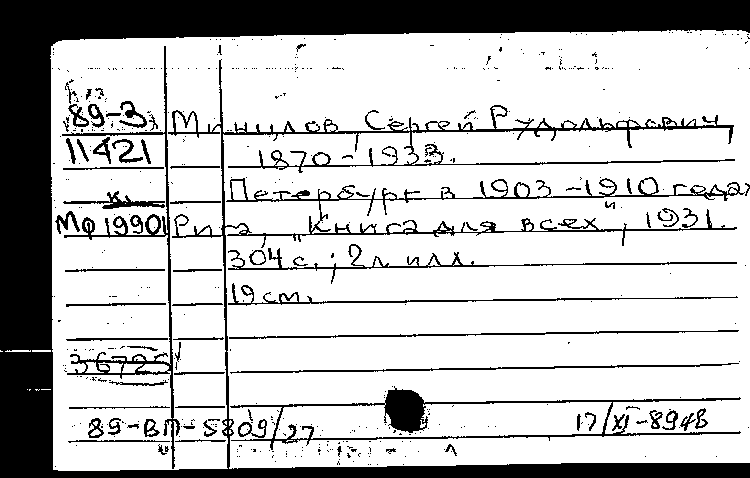 89-3 Минцлов, Сергей Рудольфович,
11421 1870-1933.
Петербург в 1903-1910 годах
Мф 19901 Рига, "Книга для всех", 1931.
304 с.; 2 л. илл.
19 см.
36725
89-ВП-5809/27 17/XI-89